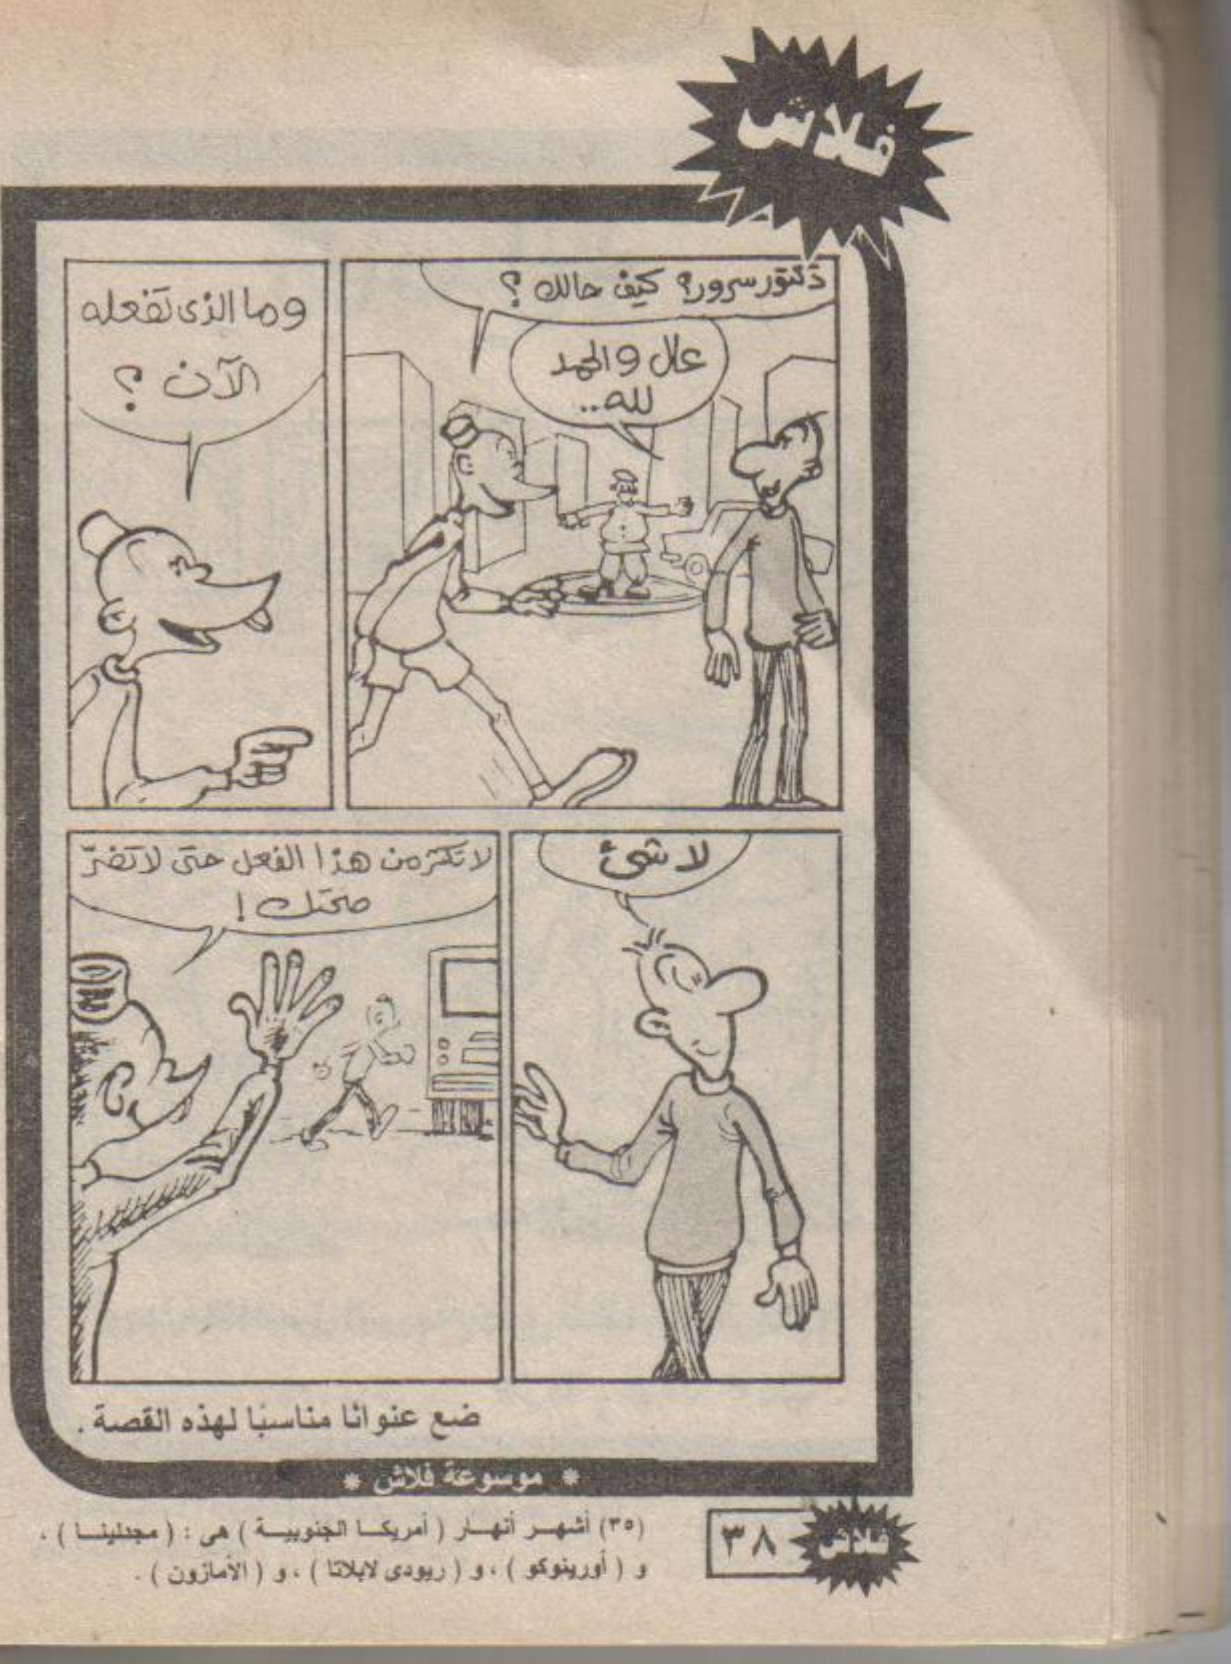 فلاش
دكتور سرور؟ كيف حالك؟
عال والحمد
لله..
وما الذى تفعله
الآن؟
لا شئ
لا تكثر من هذا الفعل حتى لا تضرّ
صحتك!
ضع عنوانا مناسبًا لهذه القصة.
* موسوعة فلاش *
(٣٥) أشهر أنهار (أمريكا الجنوبية) هى: (مجدلينا)،
و (أورينوكو)، و (ريودى لابلاتا)، و (الأمازون).
فلاش ٣٨